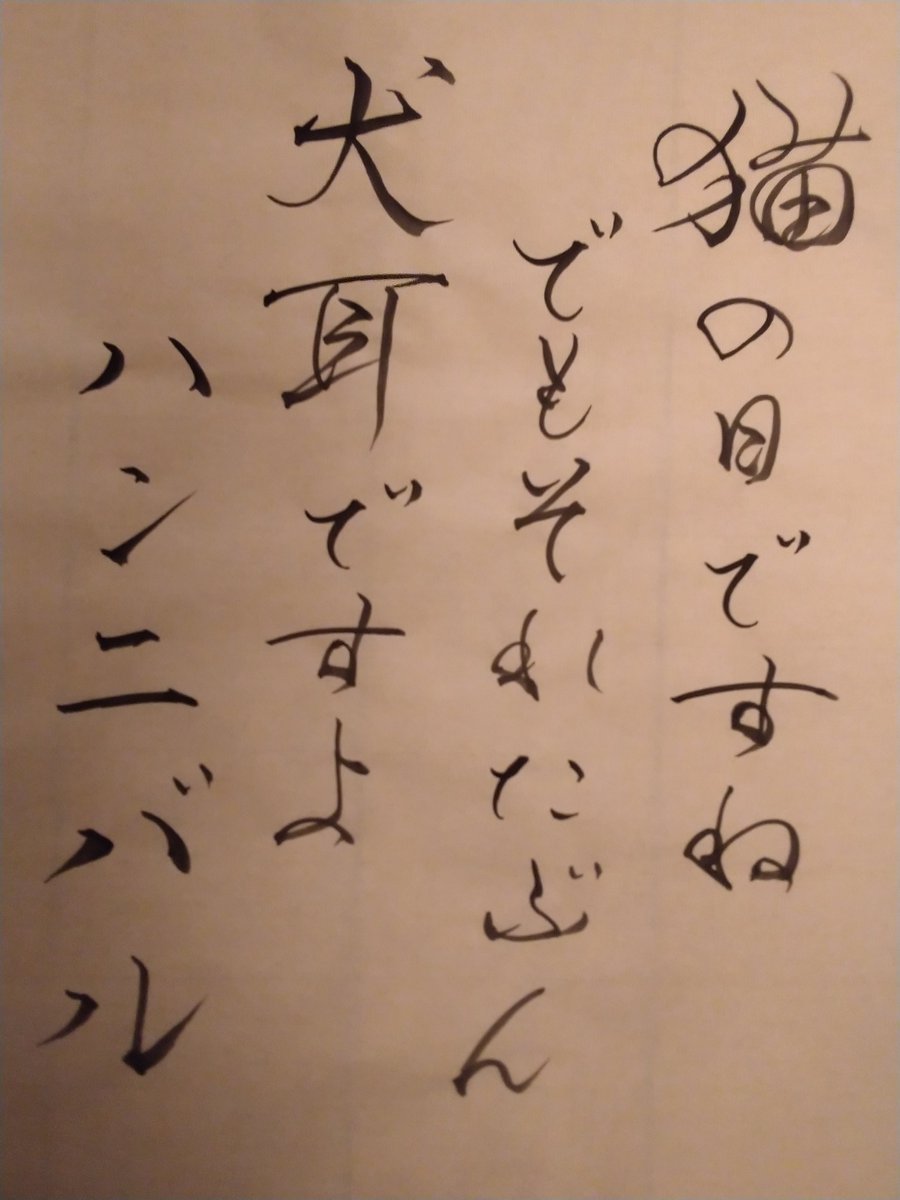 猫の日ですね
でもそれたぶん
犬耳ですよ
ハンニバル